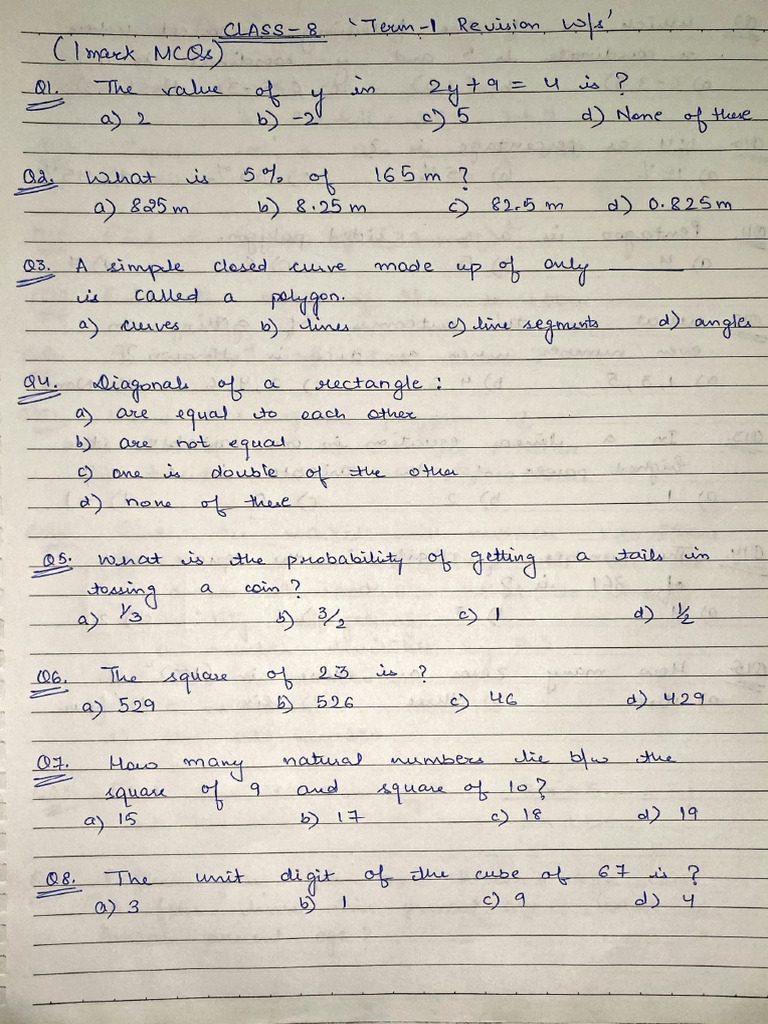 CLASS-8 'Term-1 Revision w/s'
(1 mark MCQs)
Q1. The value of y in 2y+9 = 4 is ?
a) 2 b) -2 c) 5 d) None of these
Q2. What is 5% of 165 m ?
a) 825 m b) 8.25 m c) 82.5 m d) 0.825 m
Q3. A simple closed curve made up of only ______
is called a polygon.
a) curves b) lines c) line segments d) angles
Q4. Diagonals of a rectangle :
a) are equal to each other
b) are not equal
c) one is double of the other
d) none of these
Q5. What is the probability of getting a tails in
tossing a coin ?
a) 1/3 b) 3/2 c) 1 d) 1/2
Q6. The square of 23 is ?
a) 529 b) 526 c) 46 d) 429
Q7. How many natural numbers lie b/w the
square of 9 and square of 10 ?
a) 15 b) 17 c) 18 d) 19
Q8. The unit digit of the cube of 67 is ?
a) 3 b) 1 c) 9 d) 4